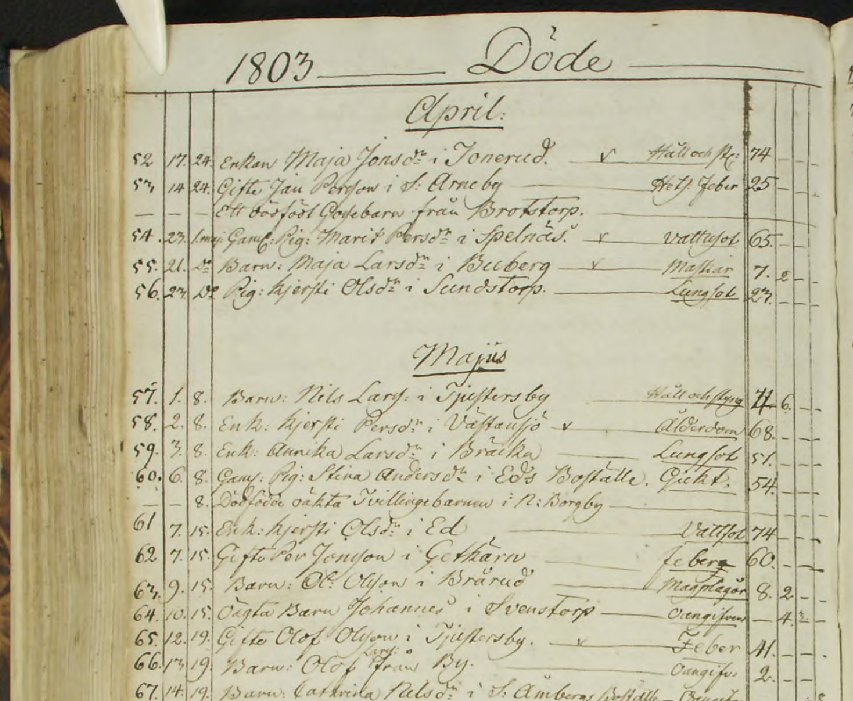 1803 Döde
April:
52 17. 24. Enkan Maja Jonsdr i Jonerud. Håll och 74
53 14 24. Gifte Jan Person i S: Arneby Hets Feber 25
Ett dödfödt Gossebarn från Brotstorp.
54. 23. 1.maj. Gaml: Pig: Marit Persdr i Spelnäs. Vattusot 65.
55. 21. Do Barn: Maja Larsdr i Buberg Maskar 7. 2
56. 23 Do Pig: Kjersti Olsdr i Sundstorp. Lungsot 23.
Majus
57. 1. 8. Barn: Nils Lars: i Tjustersby Håll och styng 71 6.
58. 2. 8. Enk: Kjersti Persdr i Västansjö Ålderdom 68.
59. 3. 8 Enk: Annika Larsdr i Bräcka Lungsot 51.
60. 6. 8 Gaml: Pig: Stina Andersdr i Eds Boställe. Gickt. 54.
8. Dödfödde oäkta Tvillingebarnen i N: Borgby
61 7. 15. Enk: Kjersti Olsdr i Ed Vattsot 74
62 7. 15 Gifte Per Jonson i Getkärn feber 60.
63. 9. 15. Barn: Ol: Olson i Brärud Magplågor 8. 2
64. 10. 15. Oägta Barn Johannes i Svenstorp Oangifven 4.
65. 12. 19. Gifte Olof Olson i Tjustersby. Feber 41.
66. 13 19. Barn: Olof Lars: från By. Oangifv: 2.
67. 14 19. Barn: Catharina Nilsdr i S: Ambergs Boställe